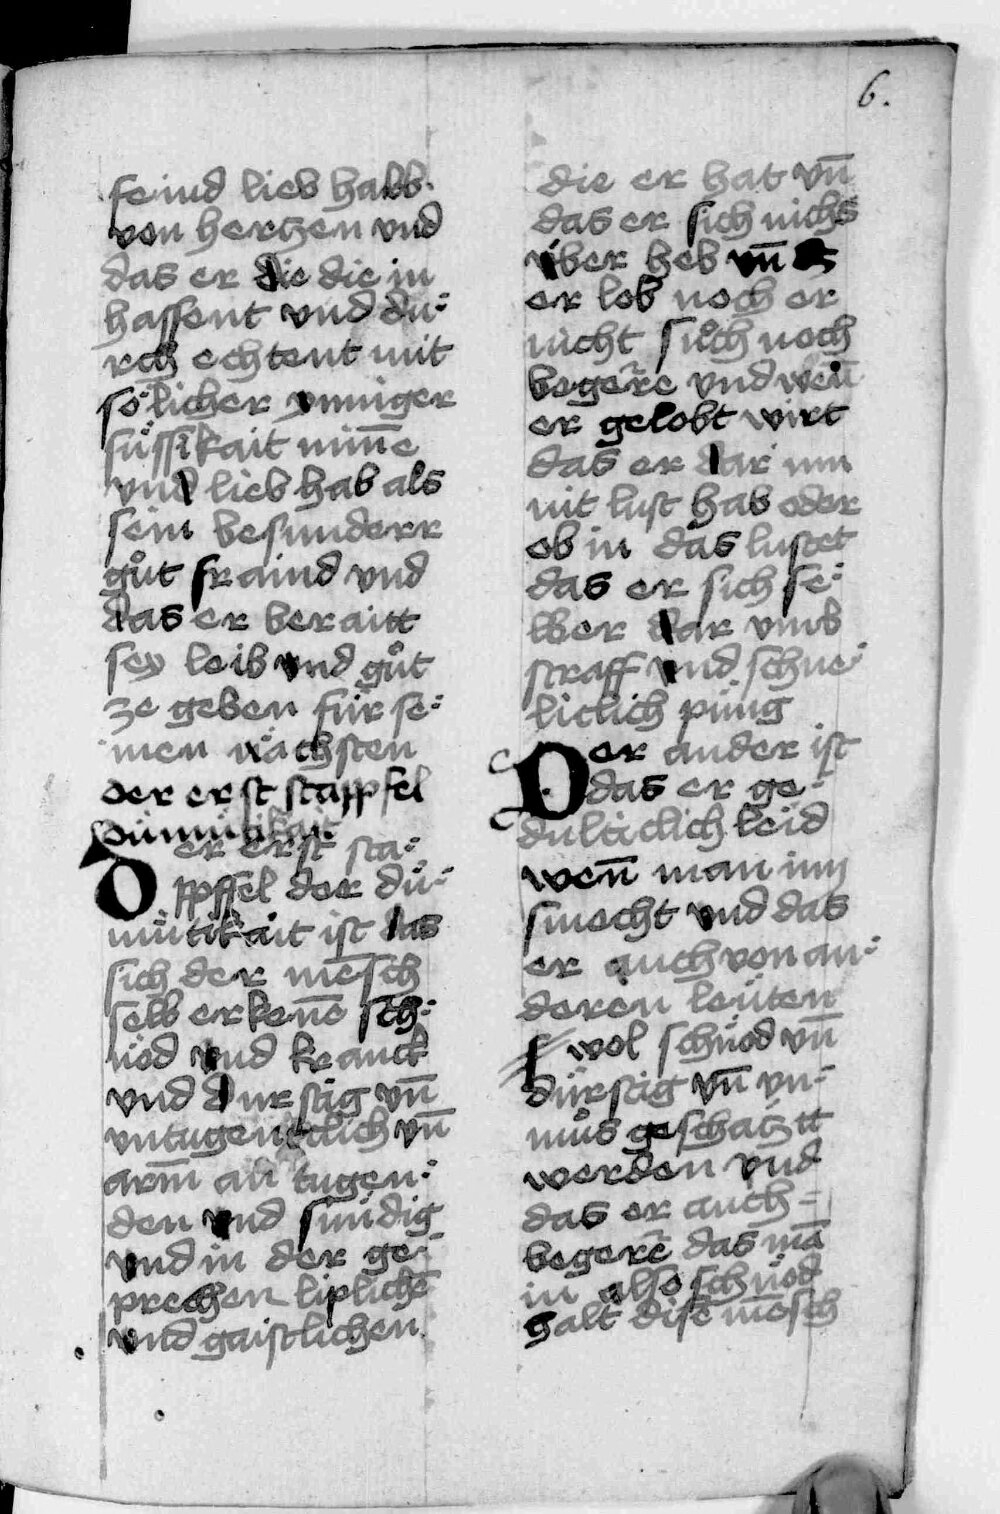 6.
feind lieb hab
von hertzen vnd
das er die die in
hassent vnd du⸗
rch echtent mit
sölicher ynniger
süssikait min̄e
vnd lieb hab als
sein besunderr
gůt fraind vnd
das er beraitt
sey leib vnd gůt
ze geben für se⸗
inen nächsten
der erst stappfel
dümütikait
Der erst sta⸗
ppffel der dü⸗
mütikait ist das
sich der me̅sch
selb erken̄e sch⸗
nöd vnd kranck
vnd durstig vn̄
vntugentlich vn̄
arm̄ an tugen⸗
den vnd sündig
vnd in der ge⸗
prechen liplichē
vnd gaistlichen
die er hat vn̄
das er sich nichs
über heb vn̄
er lob noch er
nicht sůch noch
begere vnd wen̄
er gelobt wirt
das er dar inn
nit lust hab oder
ob in das lustet
das er sich se⸗
lber dar vmb
straff vnd schne⸗
litlich püng
Der ander ist
das er ge⸗
dulticlich leid
wen̄ man inn
smecht vnd das
er auch von an⸗
deren leüten
wol schnöd vn̄
dürstig vn̄ vn⸗
nüs geschatztt
werden vnd
das er auch
begere das mā
in also schnöd
halt dise̅ me̅sch